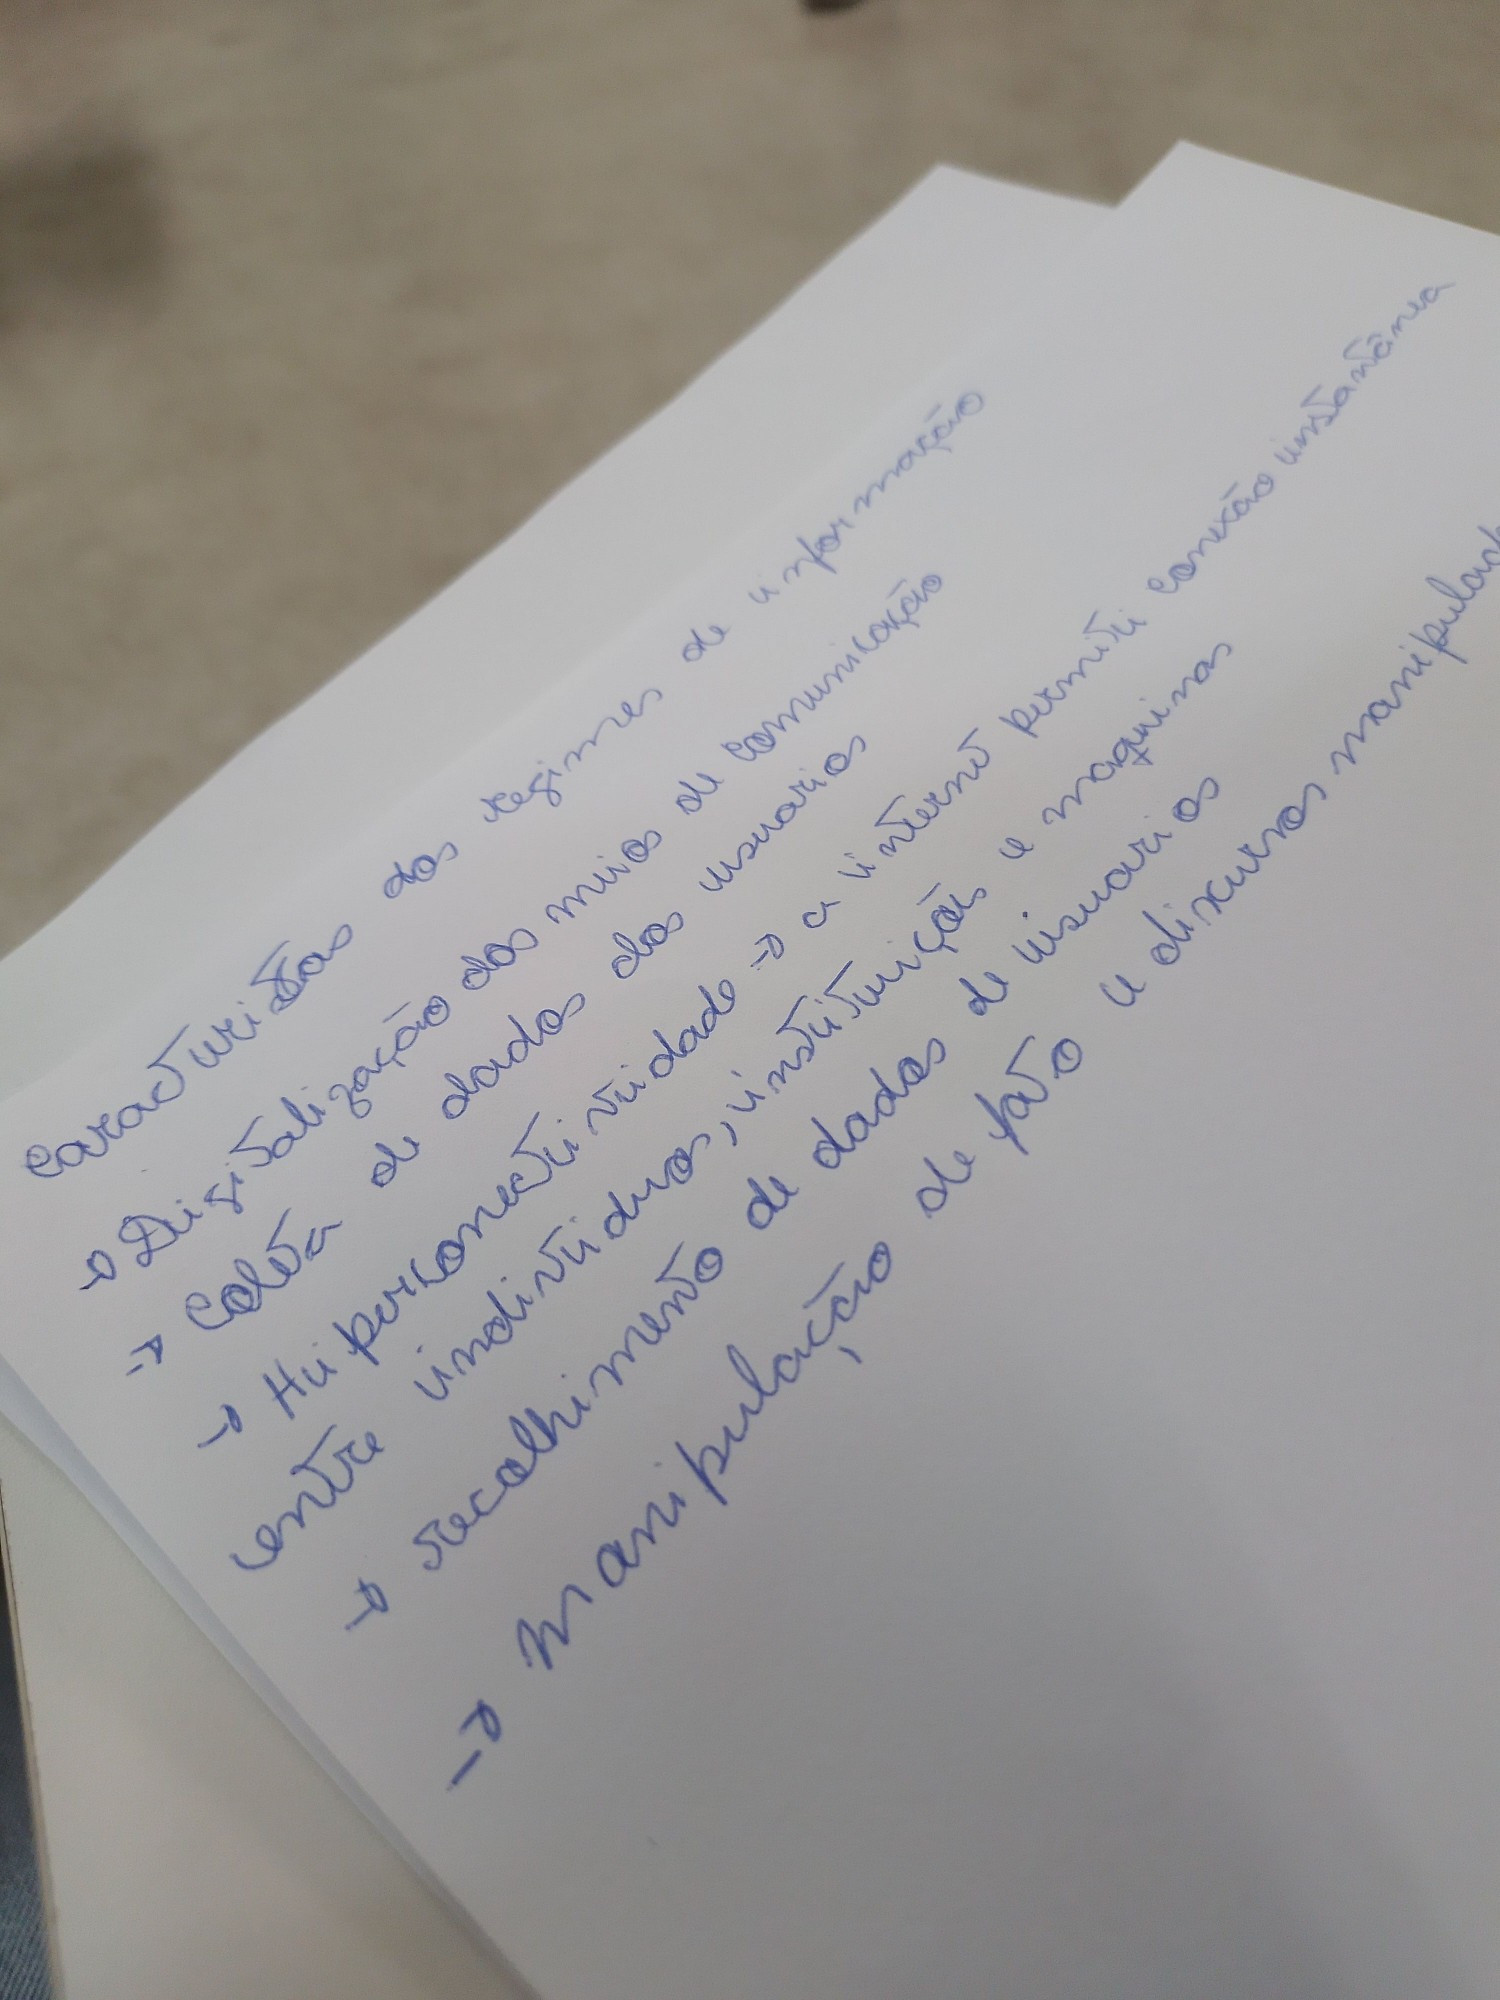 caracteristas dos regimes de informação
→ Digitalização dos meios de comunicação
→ Coleta de dados dos usuarios
→ Hiperconectividade → a internet permiti conexão instantânea
entre individuos, instituição e maquinas
→ recolhimento de dados de usuarios
→ manipulação de fato e discursos